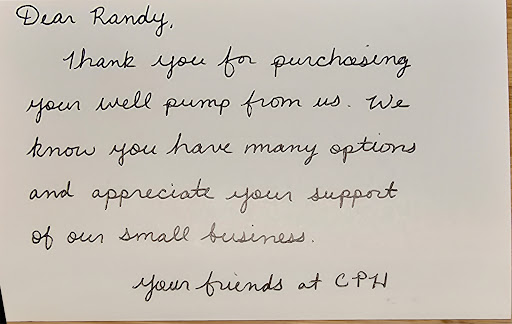 Dear Randy,
Thank you for purchasing
your well pump from us. We
know you have many options
and appreciate your support
of our small business.
Your friends at CPH